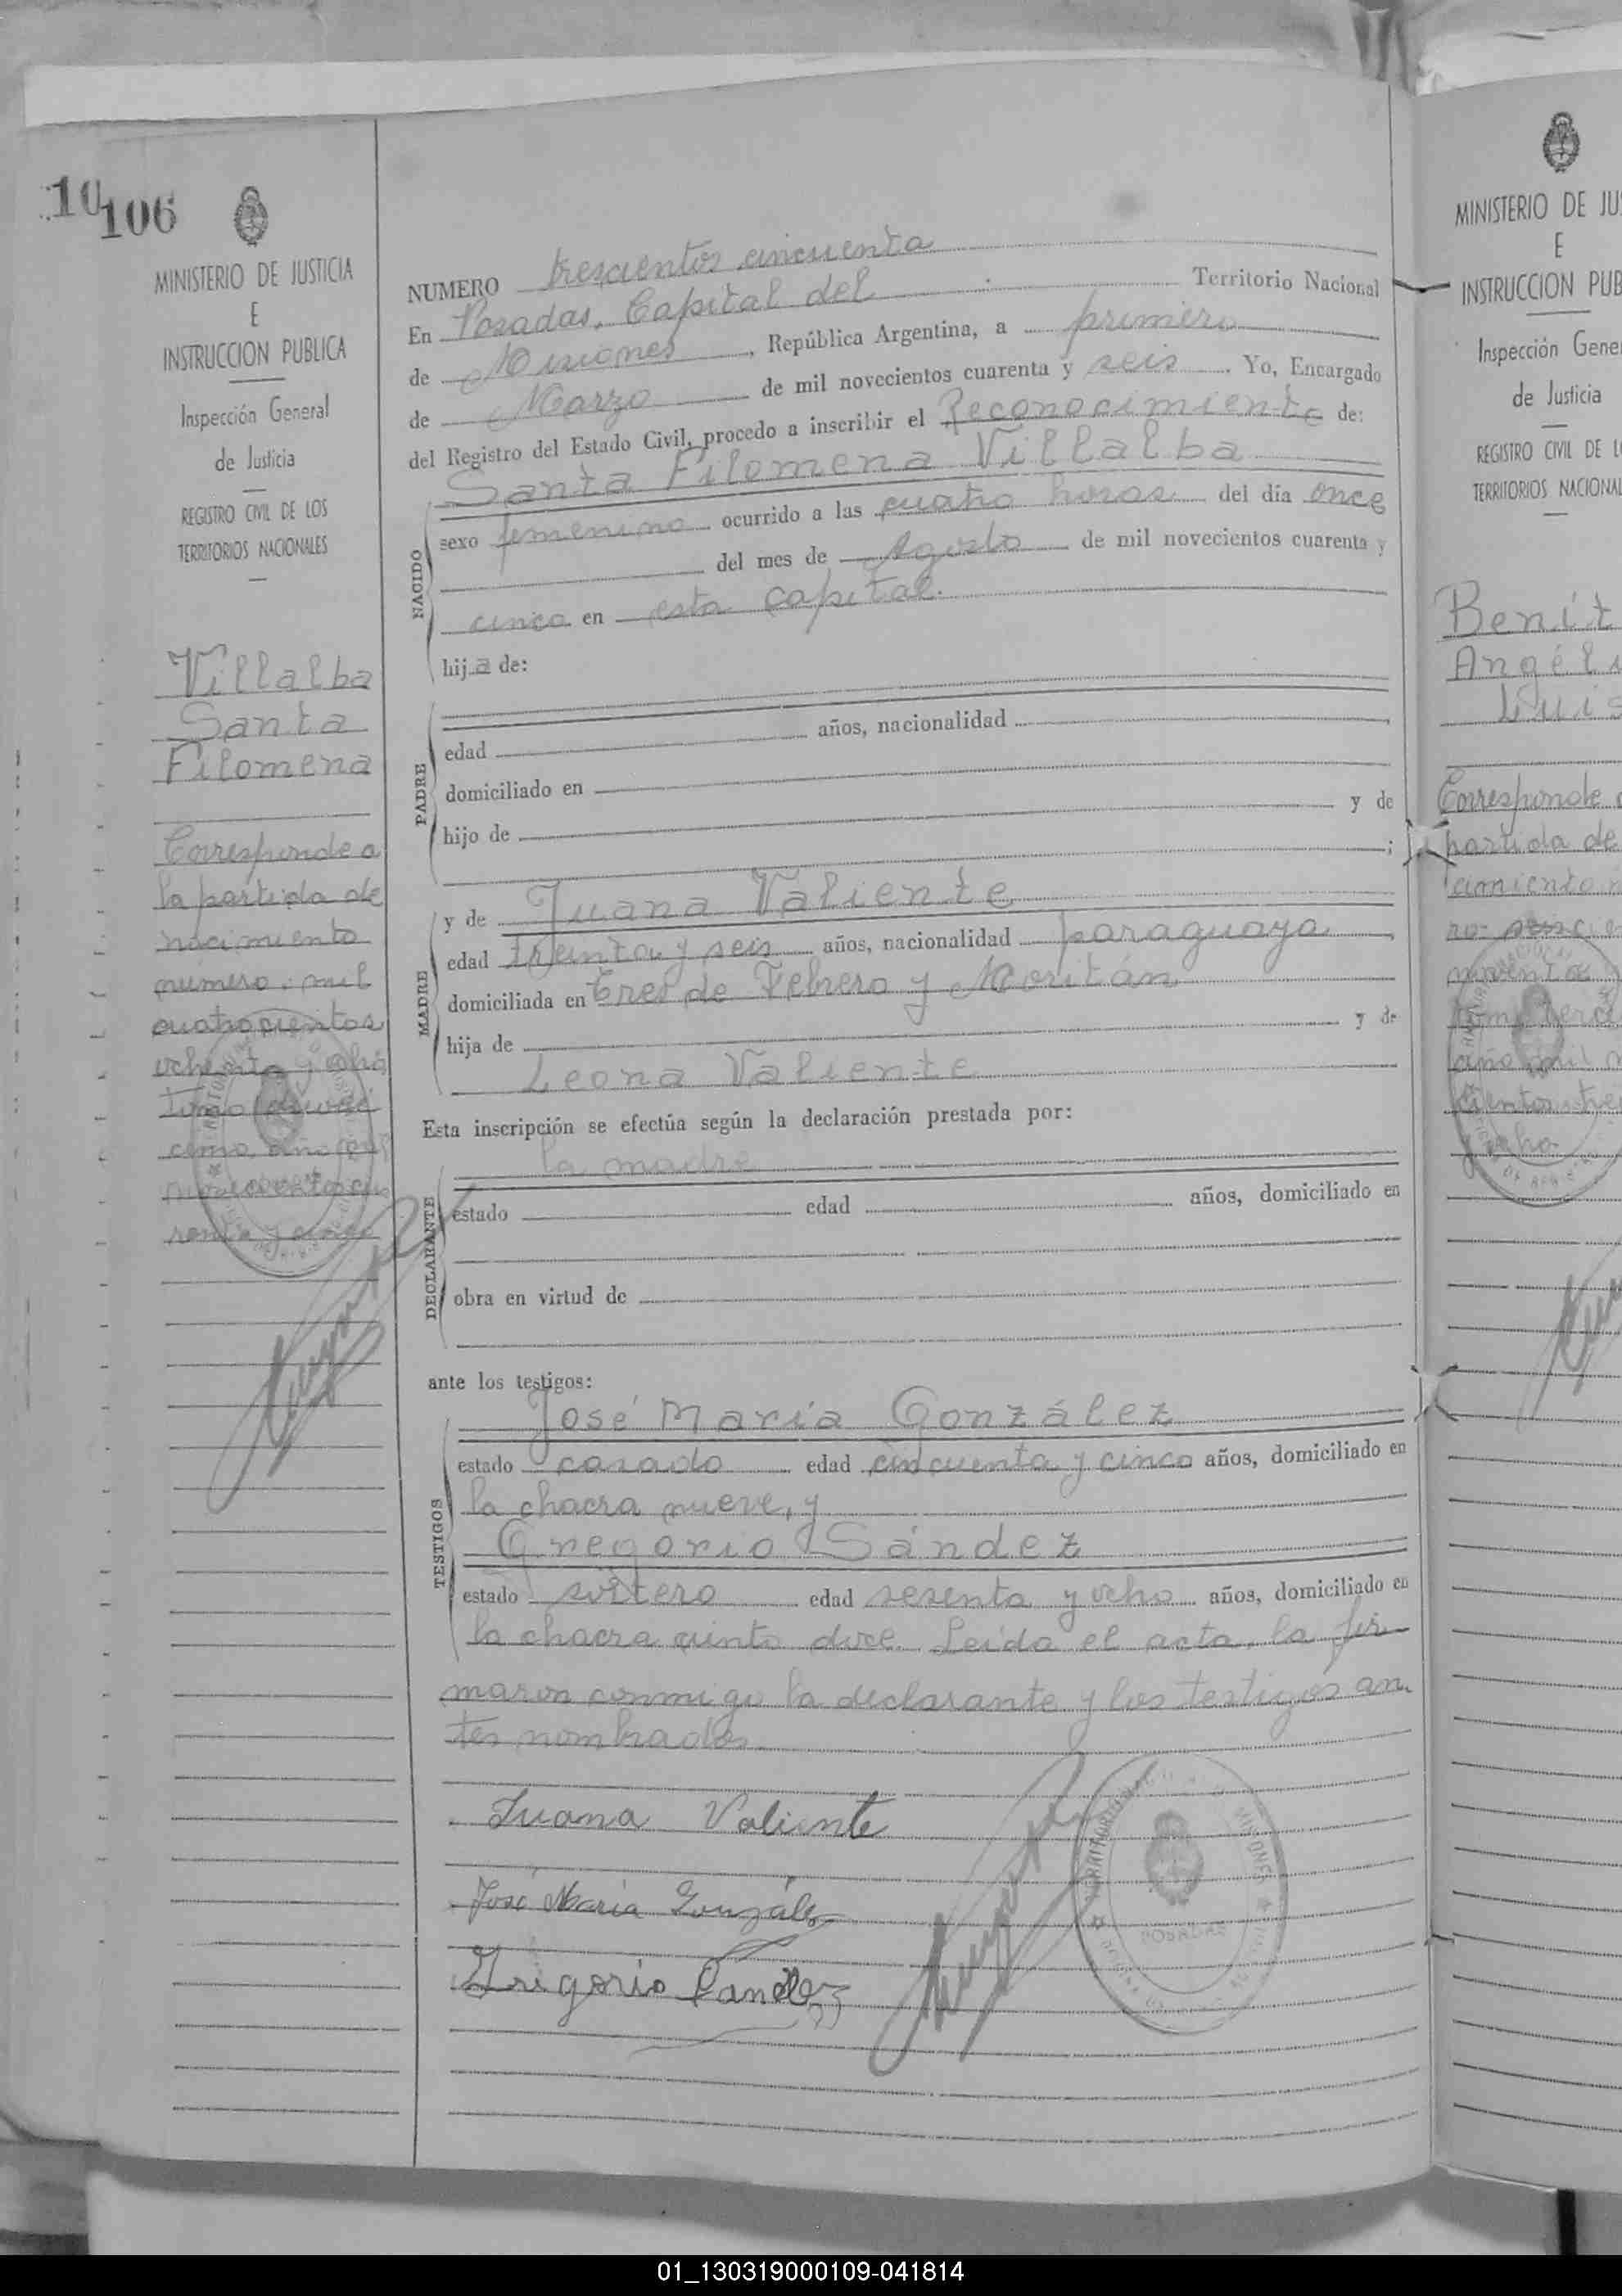 10
106
MINISTERIO DE JUSTICIA
E
INSTRUCCION PUBLICA
Inspección General
de Justicia
REGISTRO CIVIL DE LOS
TERRITORIOS NACIONALES
Villalba
Santa
Filomena
Corresponde a
la partida de
nacimiento
número: mil
cuatrocientos
ochenta y ocho
Tomo
año
novecientos cua
renta y cinco
NUMERO trescientos cincuenta
En Posadas, Capital del Territorio Nacional
de Misiones, República Argentina, a primero
de Marzo de mil novecientos cuarenta y seis. Yo, Encargado
del Registro del Estado Civil, procedo a inscribir el Reconocimiento de:
NACIDO
Santa Filomena Villalba
sexo femenino ocurrido a las cuatro horas del día once
del mes de Agosto de mil novecientos cuarenta y
cinco en esta capital.
hija de:
PADRE
edad años, nacionalidad
domiciliado en
hijo de y de
;
MADRE
y de Juana Valiente
edad treinta y seis años, nacionalidad paraguaya,
domiciliada en Tres de Febrero y Moritán
hija de y de
Leona Valiente
Esta inscripción se efectúa según la declaración prestada por:
DECLARANTE
la madre
estado edad años, domiciliado en
obra en virtud de
ante los testigos:
TESTIGOS
José María González
estado casado edad cincuenta y cinco años, domiciliado en
la chacra nueve, y
Gregorio Sández
estado soltero edad sesenta y ocho años, domiciliado en
la chacra quinta doce. Leída el acta, la fir-
maron conmigo la declarante y los testigos an-
tes nombrados.
Juana Valiente
José María González
Grigorio Sandez
POSADAS
MISIONES
MINISTERIO DE JUS
E
INSTRUCCION PUB
Inspección Gene
de Justicia
REGISTRO CIVIL DE L
TERRITORIOS NACIONAL
Benít
Angél
Luis
Corresponde a
partida de
cimiento n
año mil
01_130319000109-041814